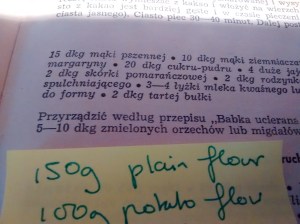 z kakao jest bardziej
ciasta jasnego). Ciasto piec 30—40 minut. Dalej post
15 dkg mąki pszennej • 10 dkg mąki ziemniacza
margaryny • 20 dkg cukru-pudru • 4 duże jaj
2 dkg skórki pomarańczowej • 2 dkg rodzynk
spulchniającego • 3—4 łyżki mleka kwaśnego lu
do formy • 2 dkg tartej bułki
Przyrządzić według przepisu „Babka ucierana
5—10 dkg zmielonych orzechów lub migdałów
150g plain flour
100g potato flou